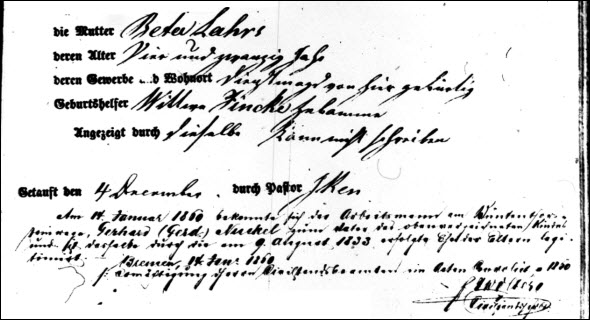 die Mutter Beta Lahrs
deren Alter Vier und zwanzig Jahr
deren Gewerbe und Wohnort Dienstmagd von hier gebürtig
Geburtshelfer Wittwe Fincke Hebamme
Angezeigt durch dieselbe kann nicht schreiben
Getauft den 4 December durch Pastor Iken
Am 14. Januar 1860 bekannte sich der Arbeitsmann am Buntenthor-
steinwege, Gerhard (Gerd) Muckel zum Vater des obenverzeichneten Kindes
und ist dasselbe durch die am 9 August 1833 erfolgte Ehe der Eltern legi-
timirt.
Bremen, 14 Jan 1860